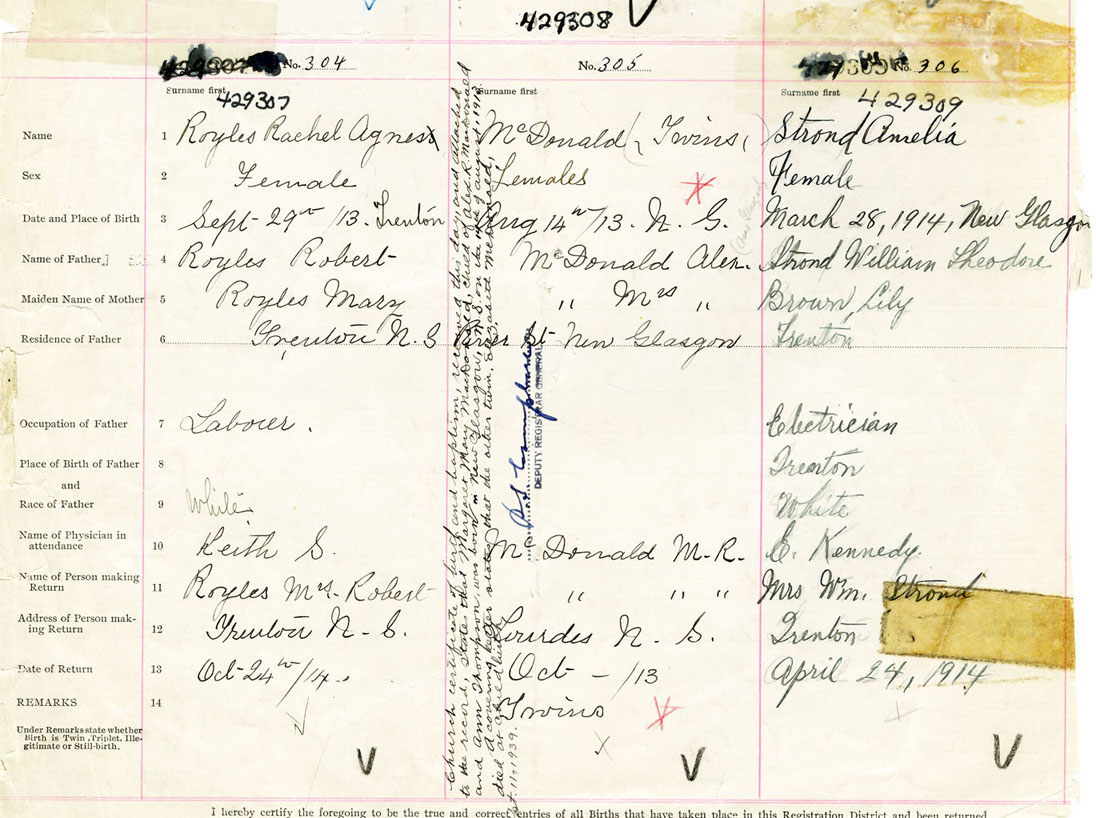 429308
No. 304 No. 305 No. 306
Surname first Surname first Surname first
429307 429309
Name 1 Royles Rachel Agness McDonald (Twins) Strond Amelia
Sex 2 Female Females Female
Date and Place of Birth 3 Sept 29th/13. Trenton Aug 14th/13. N. G. March 28, 1914, New Glasgow
Name of Father 4 Royles Robert McDonald Alex. Strond William Theodore
Maiden Name of Mother 5 Royles Mary " Mrs " Brown, Lily
Residence of Father 6 Trenton N. S St New Glasgow Trenton
Occupation of Father 7 Labourer. Electrician
Place of Birth of Father 8 Trenton
and
Race of Father 9 White White
Name of Physician in
attendance 10 Keith S. McDonald M. R. E. Kennedy.
Name of Person making
Return 11 Royles Mrs. Robert " " " Mrs Wm. Strond
Address of Person mak-
ing Return 12 Trenton N. S. Lourdes N. S. Trenton
Date of Return 13 Oct 24th/14. Oct - /13 April 24, 1914
REMARKS 14 Twins
Under Remarks state whether
Birth is Twin, Triplet, Ille-
gitimate or Still-birth.
Church certificate of birth and baptism, received this day and attached
to the record, states that Margaret Mary Macdonald, child of Alex. R. Macdonald
and Ann Thompson, was born in New Glasgow, N.S. on the day of August, 1913.
A covering letter states that the other twin,
died at birth.
Sept. 11, 1939.
DEPUTY REGISTRAR GENERAL
I hereby certify the foregoing to be the true and correct entries of all Births that have taken place in this Registration District and been returned